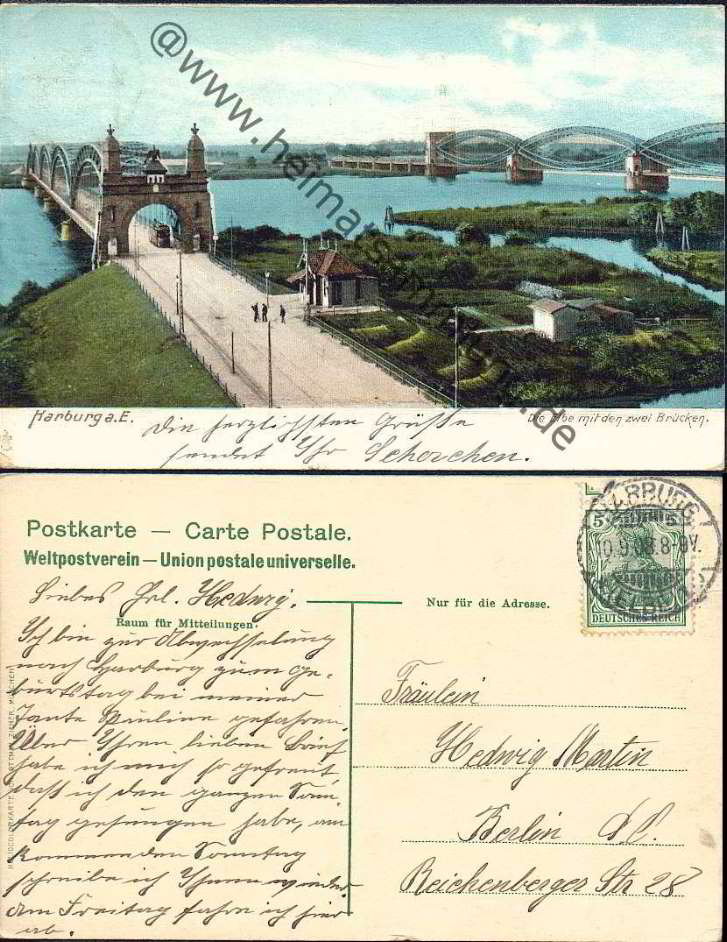 @www.heimatsammlung.de
Harburg a.E.
Die Elbe mit den zwei Brücken.
Die herzlichsten Grüße
sendet Ihr Schorchen.
Postkarte — Carte Postale.
Weltpostverein — Union postale universelle.
HARBURG
10.9.08.8-9V.
(ELBE)
5 5
DEUTSCHES REICH
Liebes Frl. Hedwig.
Raum für Mitteilungen.
Ich bin zur Abwechselung
nach Harburg zum Ge-
burtstag bei meiner
Tante Pauline gefahren.
Über Ihren lieben Brief
habe ich mich so gefreut,
daß ich den ganzen Sonn-
tag gesungen habe, am
kommenden Sonntag
schreibe ich Ihnen wieder
Am Freitag fahre ich hier
ab.
Nur für die Adresse.
Fräulein
Hedwig Martin
Berlin
Reichenberger Str 28